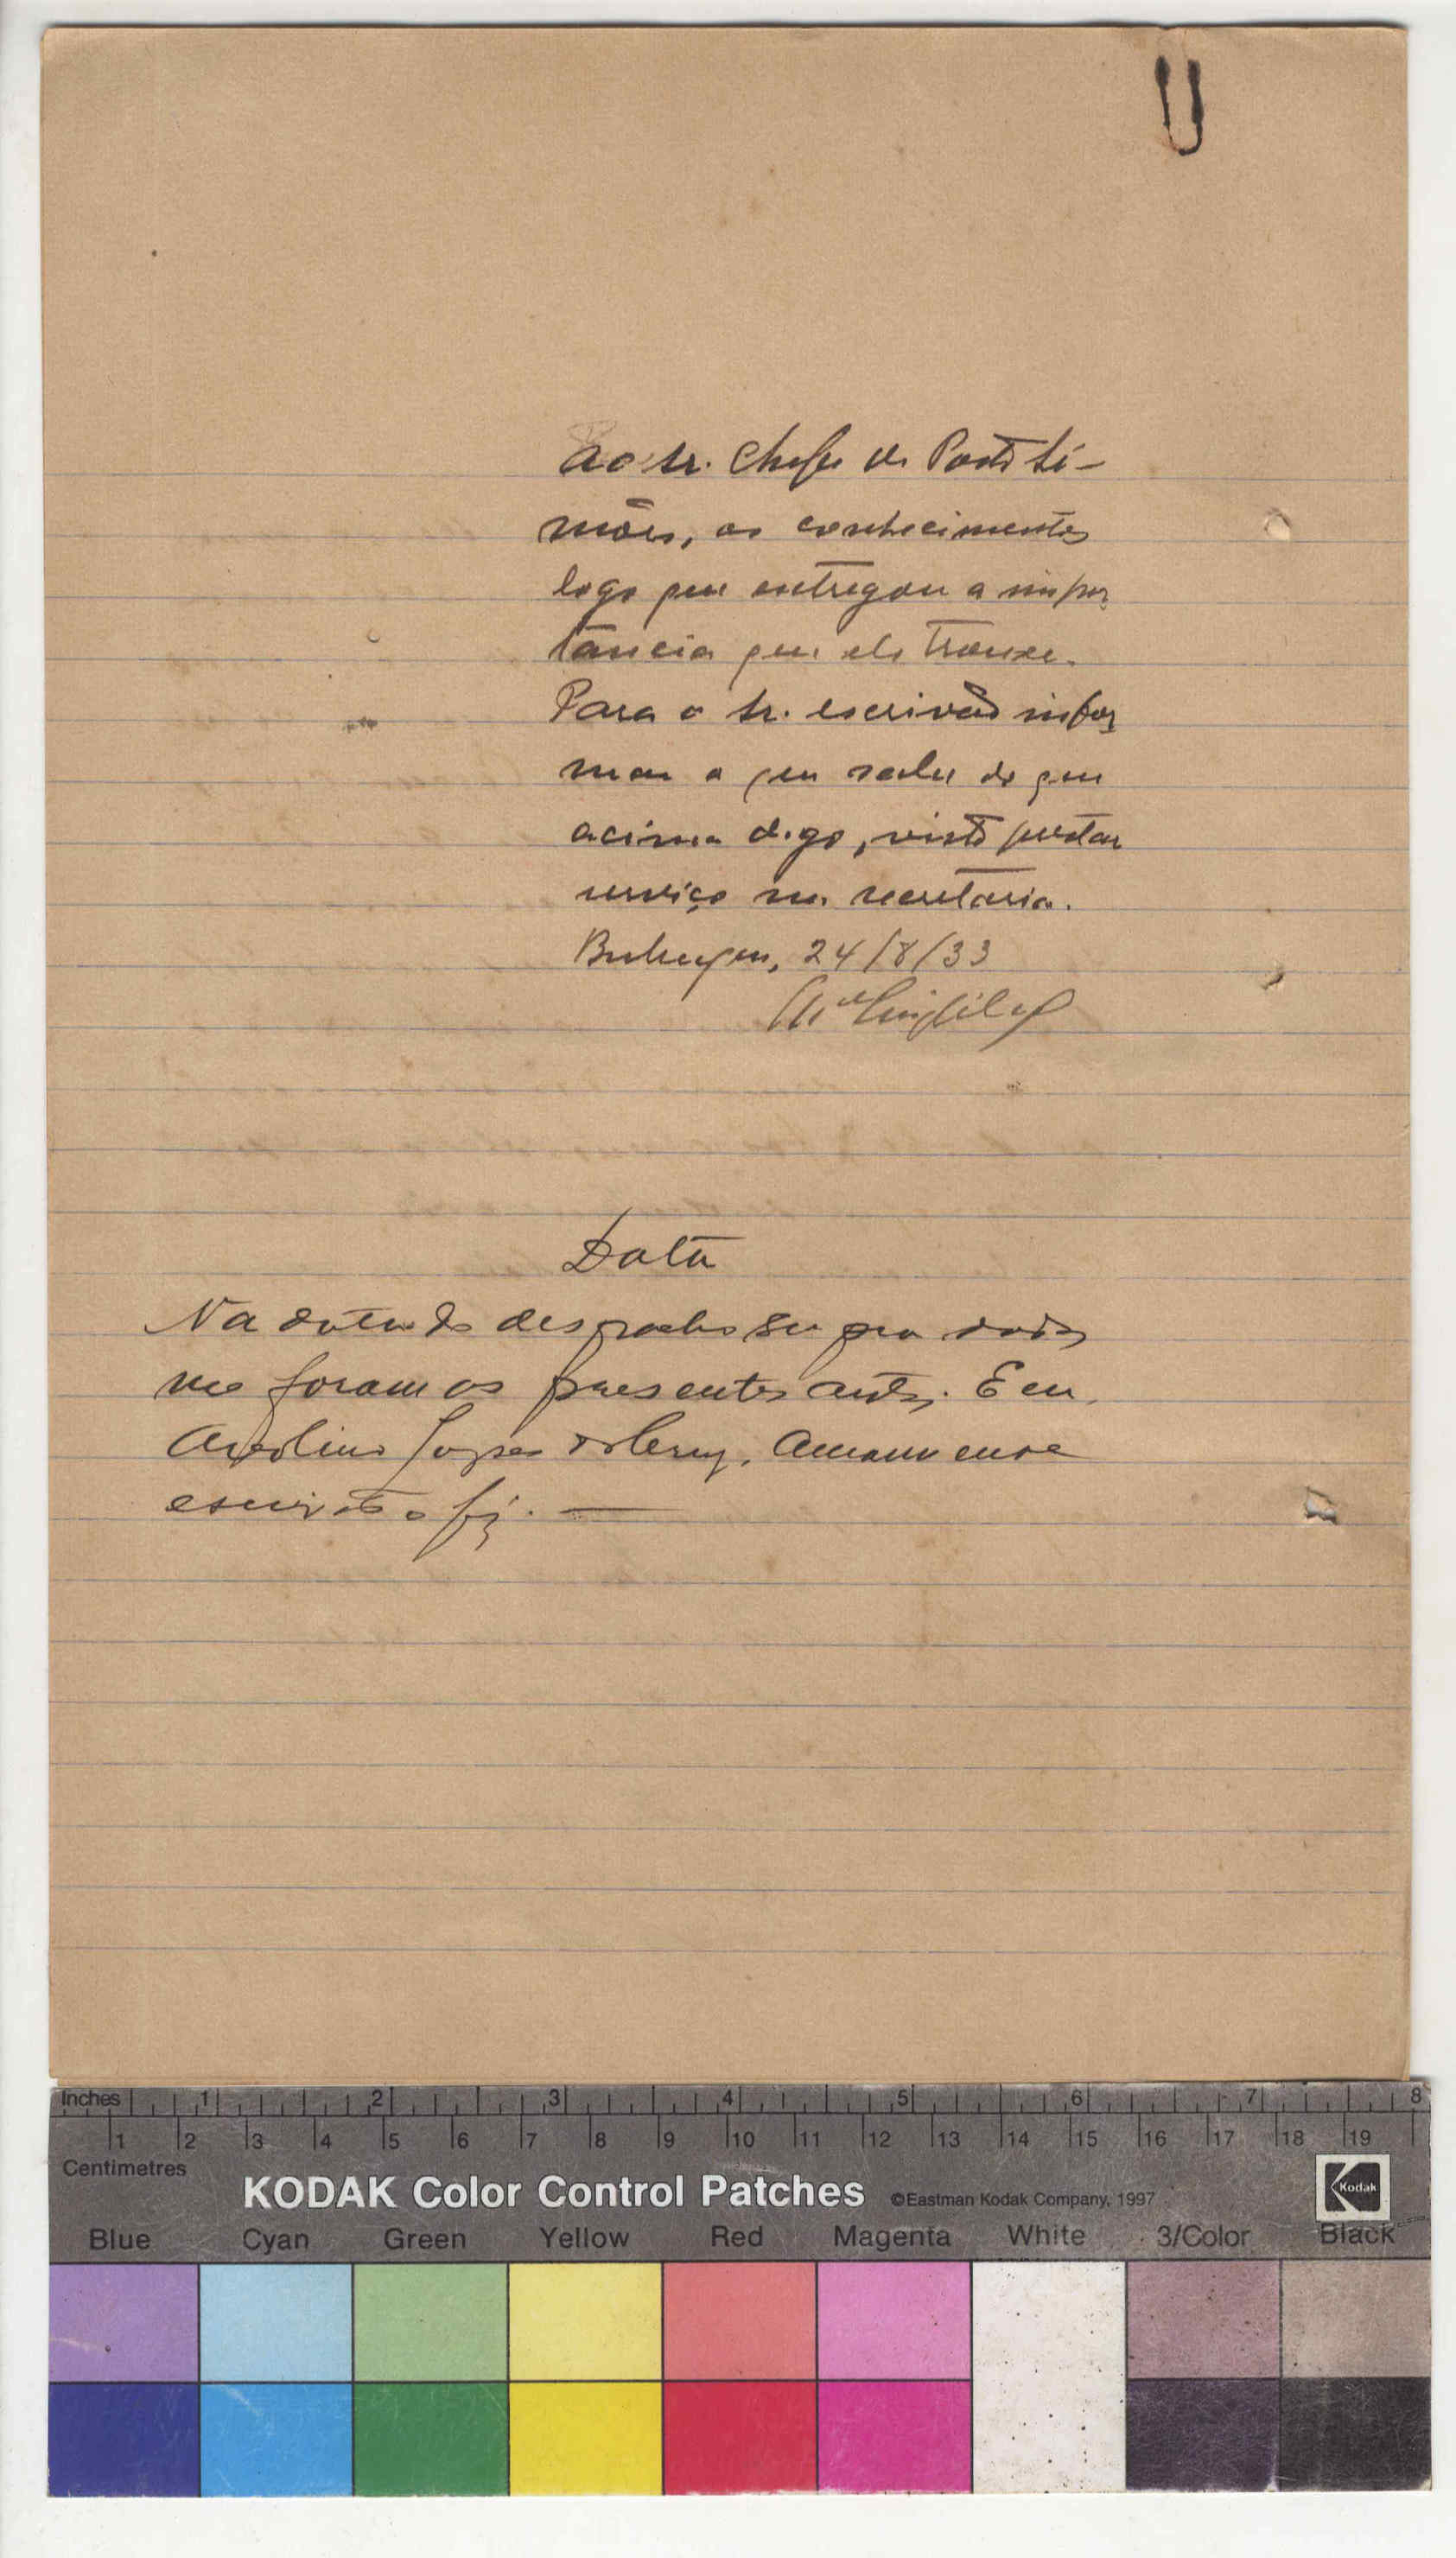 Ao sr. Chefe do Posto Si-
mões, os conhecimentos
logo que entregou a impor
tancia que ele trouxe.
Para o sr. escrivão infor
mar o que sabe do que
acima digo, visto prestar
serviço na secretaria.
24/8/33
Data
Na data do despacho supra dados
me foram os presentes autos. E eu,
Avelino Lopes amanuense
escrivão o fiz.
Inches 1 2 3 4 5 6 7 8
1 2 3 4 5 6 7 8 9 10 11 12 13 14 15 16 17 18 19
Centimetres
KODAK Color Control Patches ©Eastman Kodak Company, 1997 Kodak
Blue Cyan Green Yellow Red Magenta White 3/Color Black